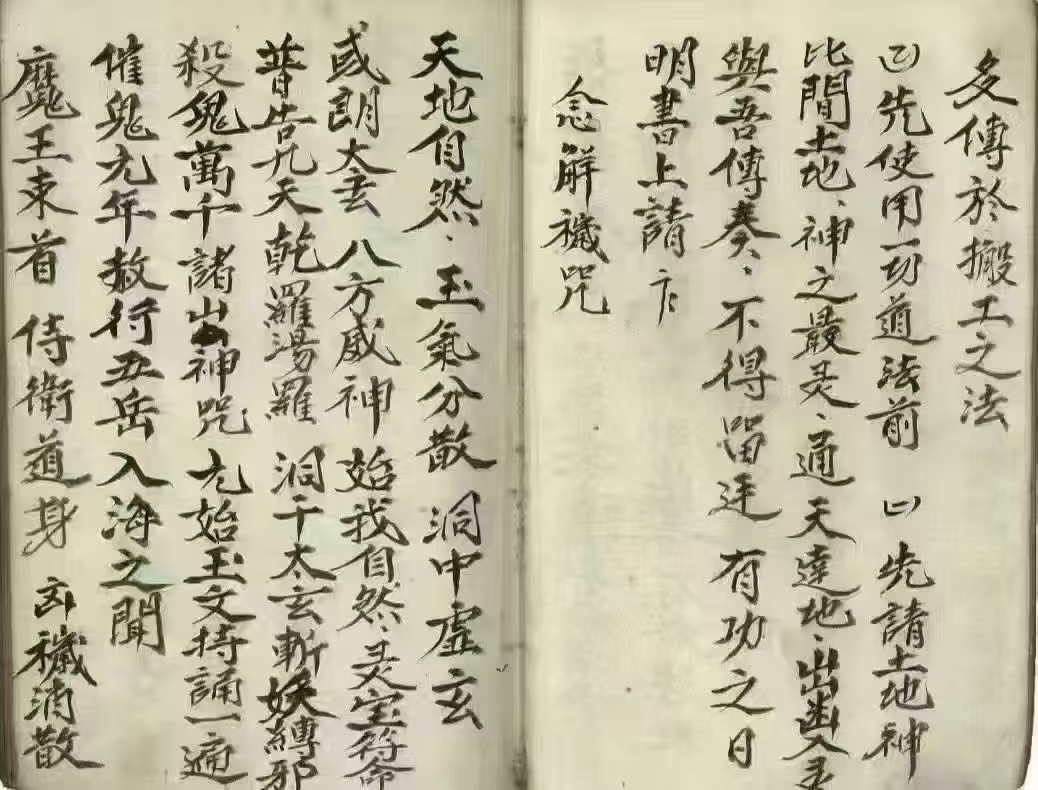 多傳於搬工之法
凹先使用一切道法前 凹先請土地神
比間土地、神之最灵、通天達地、出幽入灵
與吾傳奏、不得留迋 有功之日
明書上請
念解穢咒
天地自然、玉氣分散 洞中虚玄
或朗太玄 八方威神 始我自然、灵宝符命
普告九天 乾羅湯羅 洞干太玄 斬妖縛邪
殺鬼萬千 諸山神咒 尢始玉文 持誦一遍
催鬼尢年 敖行五岳 入海之聞
魔王束首 侍衛道身 凶穢消散